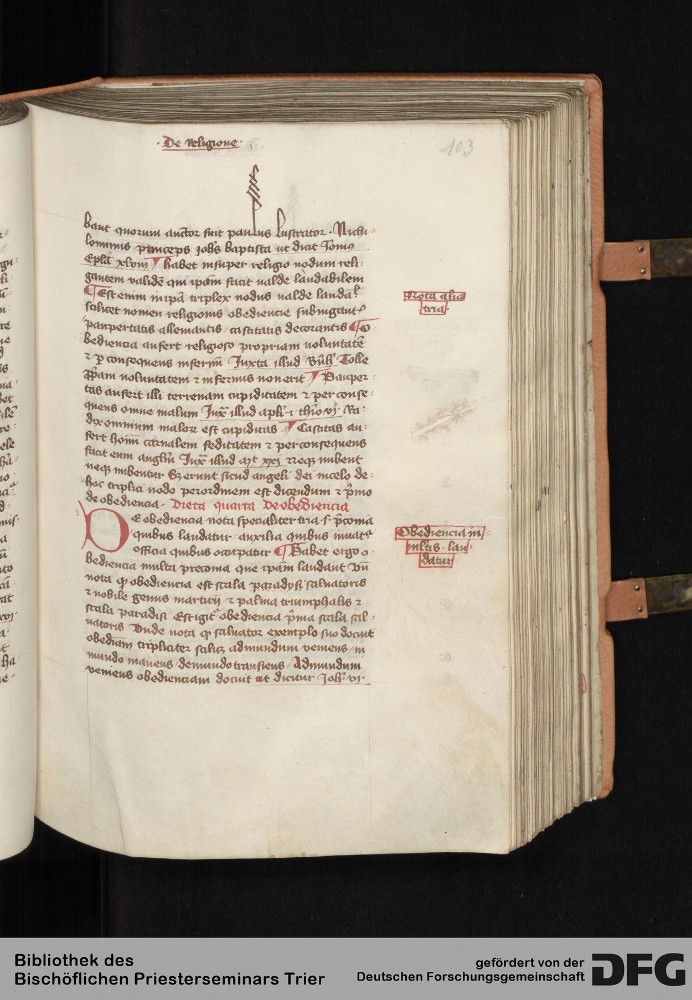 De Religione
103
bant quorum auctor fuit paulus lustrator · Nichi-
lominus princeps ioh̄s baptista ut dicit Ioniꝰ
Epl̄a xlviii habet insuper religio nodum reli-
gantem validē qui ip̄am facit valde laudabilem
Est enim in ip̄a triplex nodus valde laudaƀ
scilicet nomen religionis obediencie subiugatiꝰ
paupertatis allevantis castitatis decorantis O-
bediencia aufert religioso propriam voluntatē
⁊ ꝑ consequens infernū Iuxta illud Bn̄h Tolle
ꝓpam voluntatem ⁊ infernus non erit Pauper-
tas aufert illi terrenam cupiditatem ⁊ per conse-
quens omne malum Iux̄ illud apl̄i i thīo vi Ra-
dix omnium malorū est cupiditas Castitas au-
fert hom̄i carnalem feditatem ⁊ per consequens
facit eum angl̄m Iux̄ illud mt xxij neqꝫ nubent
neqꝫ nubentur Sꝫ erunt sicud angeli dei in celo de
hoc triplici nodo per ordinem est dicendum ⁊ pͥmo
de obediencia · Dieta quarta de obediencia
De obediencia nota specialiter tria sꝫ p̄conia
quibus laudatur auxilia quibus iuuatᷣ
officia quibus occupatur Habet ergo o-
bediencia multa preconia que ip̄am laudant Vn̄
nota ꝙ obediencia est scala paradysi saluatoris
⁊ nobile genus martirij ⁊ palma triumphalis ⁊
scala paradisi Est igit᷑ obediencia pͥma scala sal-
uatoris Unde nota ꝙ saluator exemplo suo docuit
obediām tripliciter scilicꝫ ad mundum veniens in
mundo manens de mundo transiens Ad mundum
veniens obedienciam docuit ut dicitur Ioh̄ vi
Nota alia
tria
Obediencia in
ml̄tis lau-
datur
Bibliothek des
Bischöflichen Priesterseminars Trier
gefördert von der
Deutschen Forschungsgemeinschaft
DFG